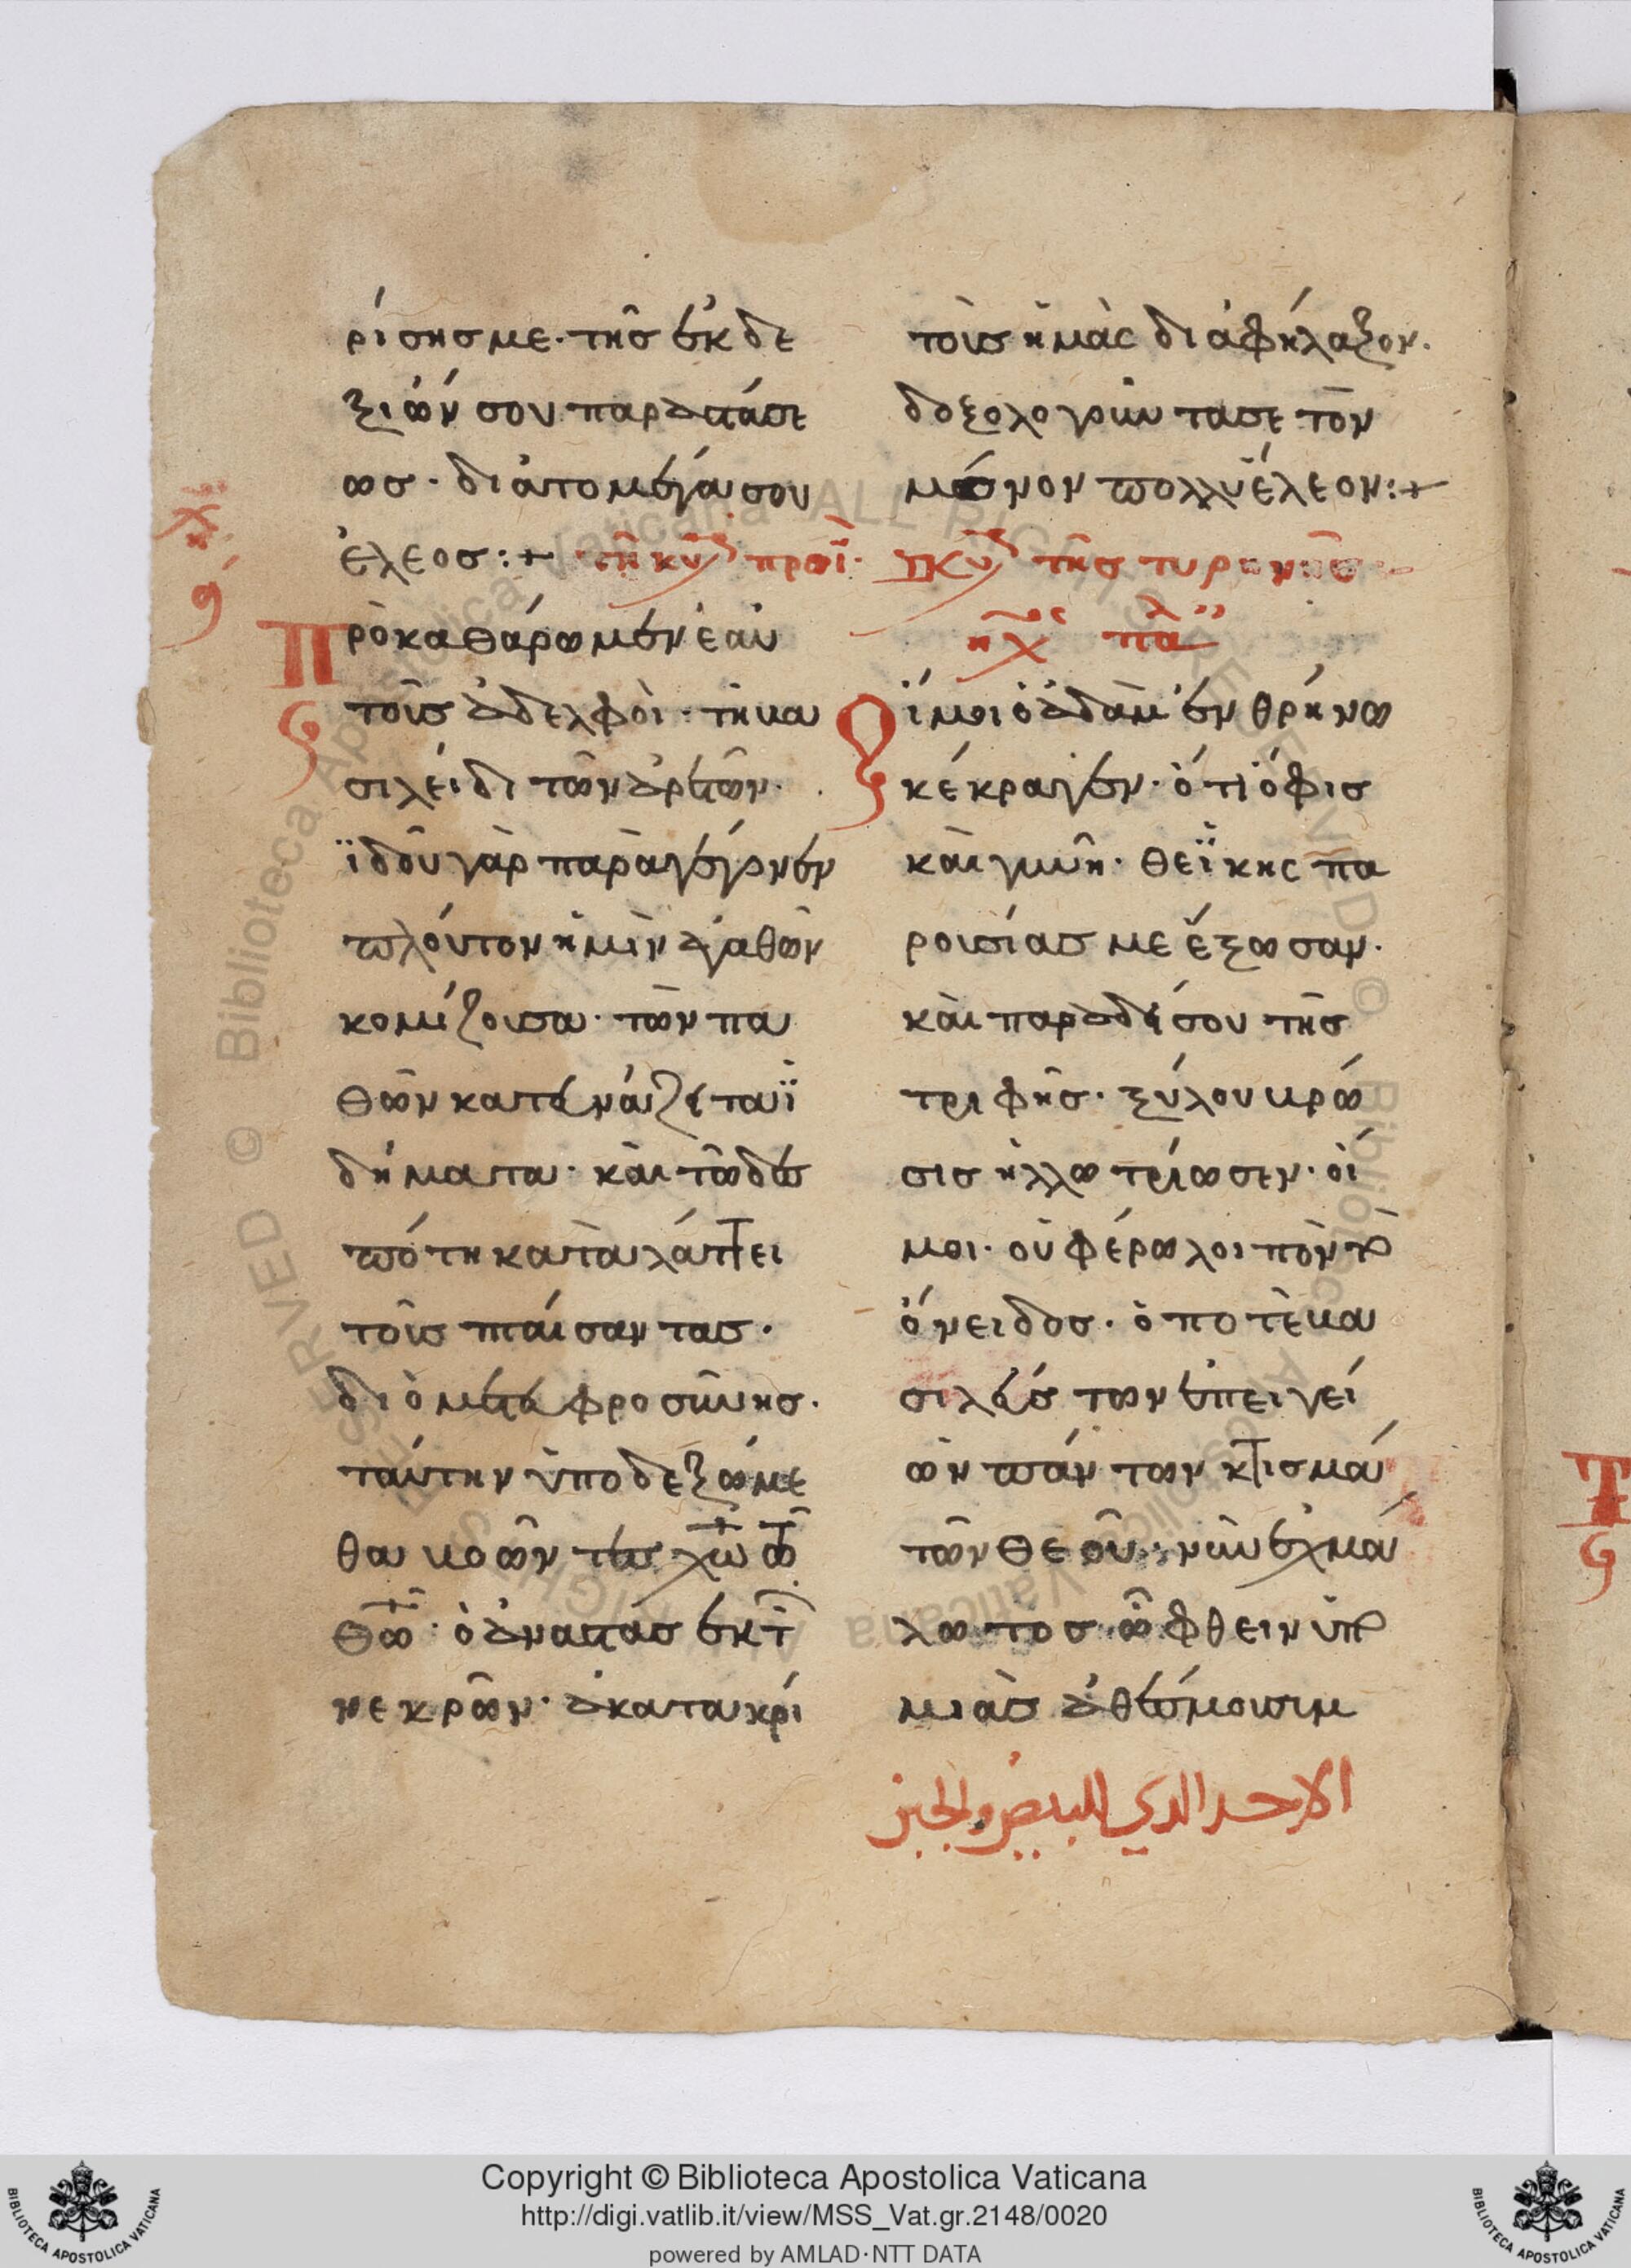 ρίσησ με· τῆσ ἐκ δε
ξιῶν σου παραστάσε
ωσ· διὰ το μέγα σου
ἔλεος:+ τῆ κυ πρωΐ·
Προκαθάρωμεν ἑαυ
τοῖσ ἀδελφοὶ· τὴ βα
σιλείδι τῶν ἀρετῶν·
ϊδοῦ γὰρ παραγέγονεν
πλούτον ἡμὶν ἀγαθῶν
κομίζουσα· τῶν πα
θῶν κατεναύζει τα ϊ
δήματα· κὰι τῶ δεσ
πότη καταλάττει
τοῖσ πταίσαντασ·
διὸ μετα φροσύνησ·
ταύτην ὑποδεξώμε
θα βοῶντεσ χω τω
θω· ὁ ἀναστὰσ ἐκ τ
νεκρῶν· ἀκατακρί
τοὺσ ἡμὰς διἀφήλαξον·
δοξολογοῦντασε τὸν
μόνον πολλυέλεον:+
κυ τῆσ τυρηνῆσ
ηχ πλα
Οἵμοι ὁ ἀδὰμ ἐν θρήνω
κέκραγεν· ὅτι ὄφισ
κὰι γυνὴ· θεϊκης πα
ρουσίασ με ἔξωσαν·
κὰι παραδείσου τῆσ
τριφῆσ· ξύλου βρώ
σισ ἠλλωτρίωσεν· οἵ
μοι· οὐ φέρω λοιπὸν τὸ
ὄνειδοσ· ὁ ποτὲ βα
σιλεύσ των ἐπειγεί
ων πάντων κτισμά
τῶν θεοῦ· νῦν ἐχμά
λωτοσ ὤφθειν ὑπὸ
μιὰσ ἀθέσμου σιμ
الاحد الذي للبيض والجبن
Copyright © Biblioteca Apostolica Vaticana
http://digi.vatlib.it/view/MSS_Vat.gr.2148/0020
powered by AMLAD·NTT DATA